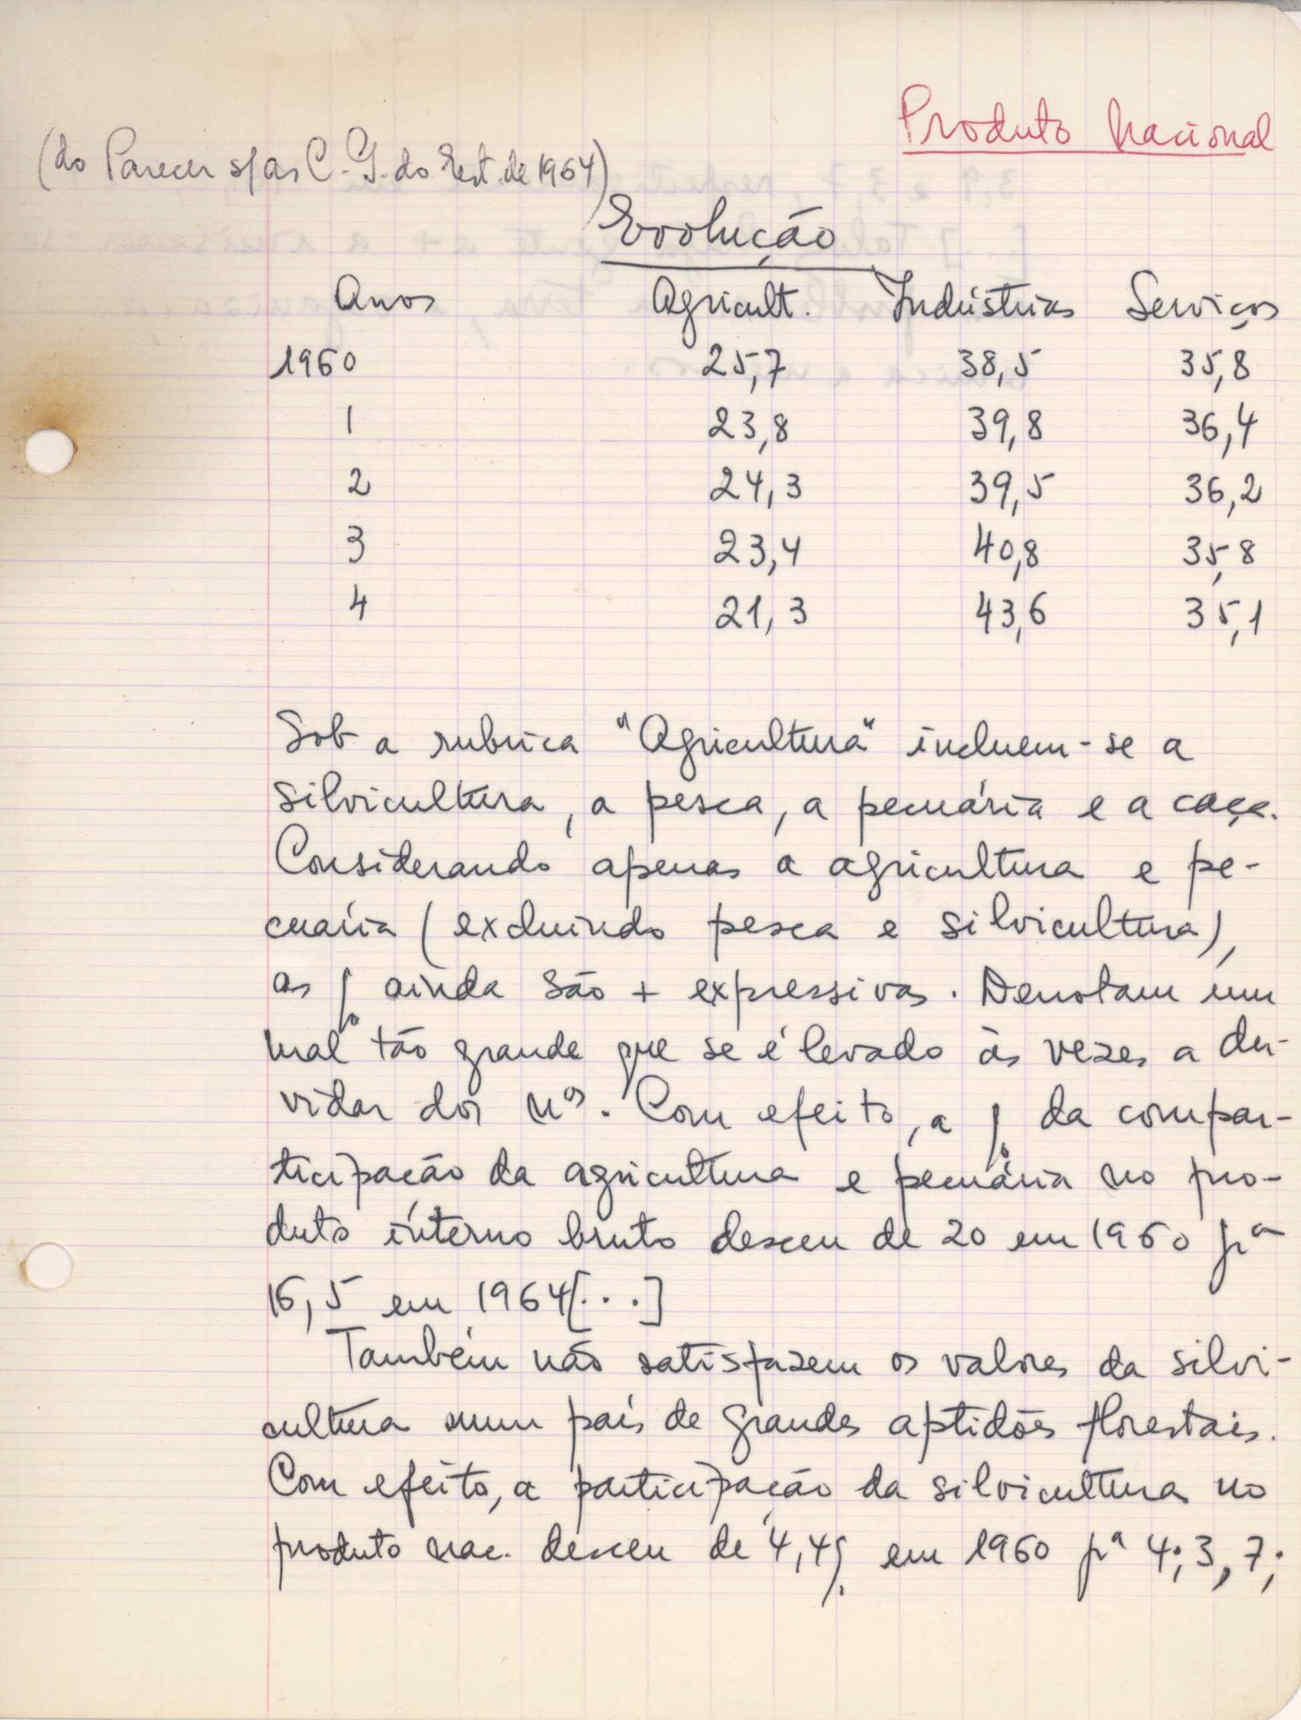 Produto Nacional
(do Parecer s/as C. G. do Est. de 1964)
Evolução
Anos Agricult. Indústrias Serviços
1960 25,7 38,5 35,8
1 23,8 39,8 36,4
2 24,3 39,5 36,2
3 23,4 40,8 35,8
4 21,3 43,6 35,1
Sob a rubrica "Agricultura" incluem-se a
silvicultura, a pesca, a pecuária e a caça.
Considerando apenas a agricultura e pe-
cuária (excluindo pesca e silvicultura),
as % ainda são + expressivas. Denotam um
mal tão grande que se é levado às vezes a du-
vidar dos nos. Com efeito, a % da compar-
ticipação da agricultura e pecuária no pro-
duto interno bruto desceu de 20 em 1960 pa
16,5 em 1964[...]
Também não satisfazem os valores da silvi-
cultura num país de grandes aptidões florestais.
Com efeito, a participação da silvicultura no
produto nac. desceu de 4,4% em 1960 pa 4; 3,7;